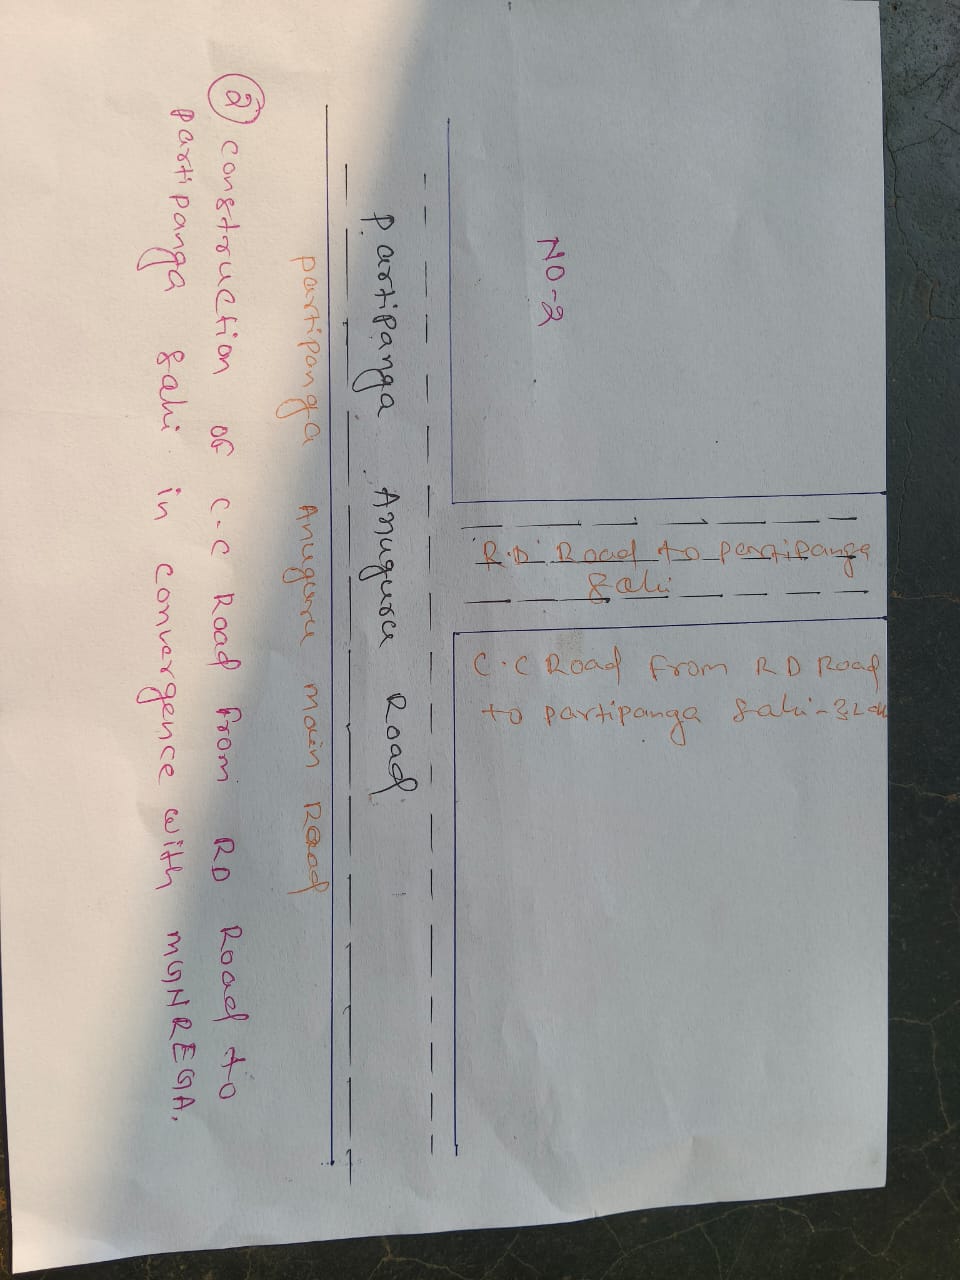 NO-2
R.D. Road to partipanga
sahi
C.C Road from RD Road
to partipanga sahi-
partipanga Anuguru Road
partipanga Anuguru main Road
② construction of C.C Road from RD Road to
partipanga sahi in convergence with MGNREGA.